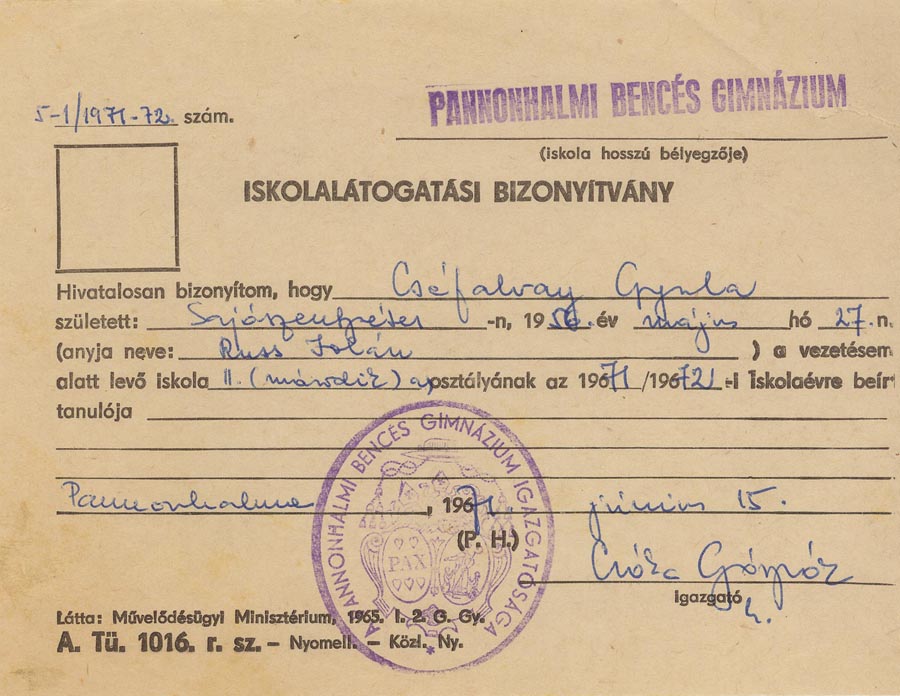 PANNONHALMI BENCÉS GIMNÁZIUM
5-1/1971-72. szám.
(iskola hosszú bélyegzője)
ISKOLALÁTOGATÁSI BIZONYÍTVÁNY
Hivatalosan bizonyítom, hogy Cséfalvay Gyula
született: Sajószentpéter -n, 1956. év május hó 27.n.
(anyja neve: Russ Jolán ) a vezetésem
alatt levő iskola II. (második) a osztályának az 1971/1972-i iskolaévre beírt
tanulója
Pannonhalma, 1971. június 15.
(P. H.)
Csóka Gáspár
igazgató
A PANNONHALMI BENCÉS GIMNÁZIUM IGAZGATÓSÁGA *
PAX
Látta: Művelődésügyi Minisztérium, 1965. I. 2. G. Gy.
A. Tü. 1016. r. sz. – Nyomell. – Közl. Ny.